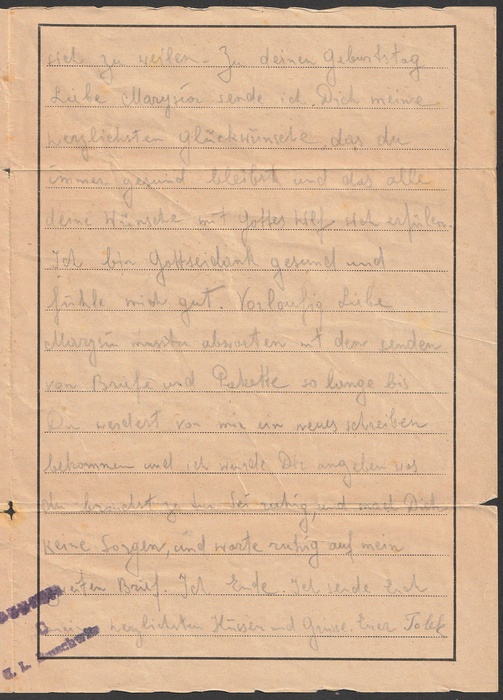 sich zu weilen. Zu deinen Geburtstag
Liebe Marysiu sende ich Dich meine
herzlichsten Glückwünsche, das du
immer gesund bleibst und das alle
deine Wünsche mit Gottes Hilf sich erfülen.
Ich bin Gottseidank gesund und
fühle mich gut. Vorloufig Liebe
Marysiu musstu abwarten mit dem senden
von Briefe und Pakette so lange bis
Du werdest von mir ein neues schreiben
bekommen und ich wurde Dir angeben was
du brauchst zu tun. Sei ruhig, und mach Dich
keine Sorgen, und warte ruhig auf mein
Brief. Ich Ende. Ich sende Euch
meine herzlichsten Küsser und Grüsse. Euer Tolek
K. L. Auschwitz